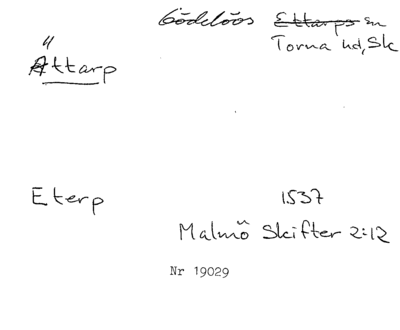 Gödelöos Ettarps sn
Torna hd, Sk
Ättarp
Eterp 1537
Malmö Skifter 2:12
Nr 19029